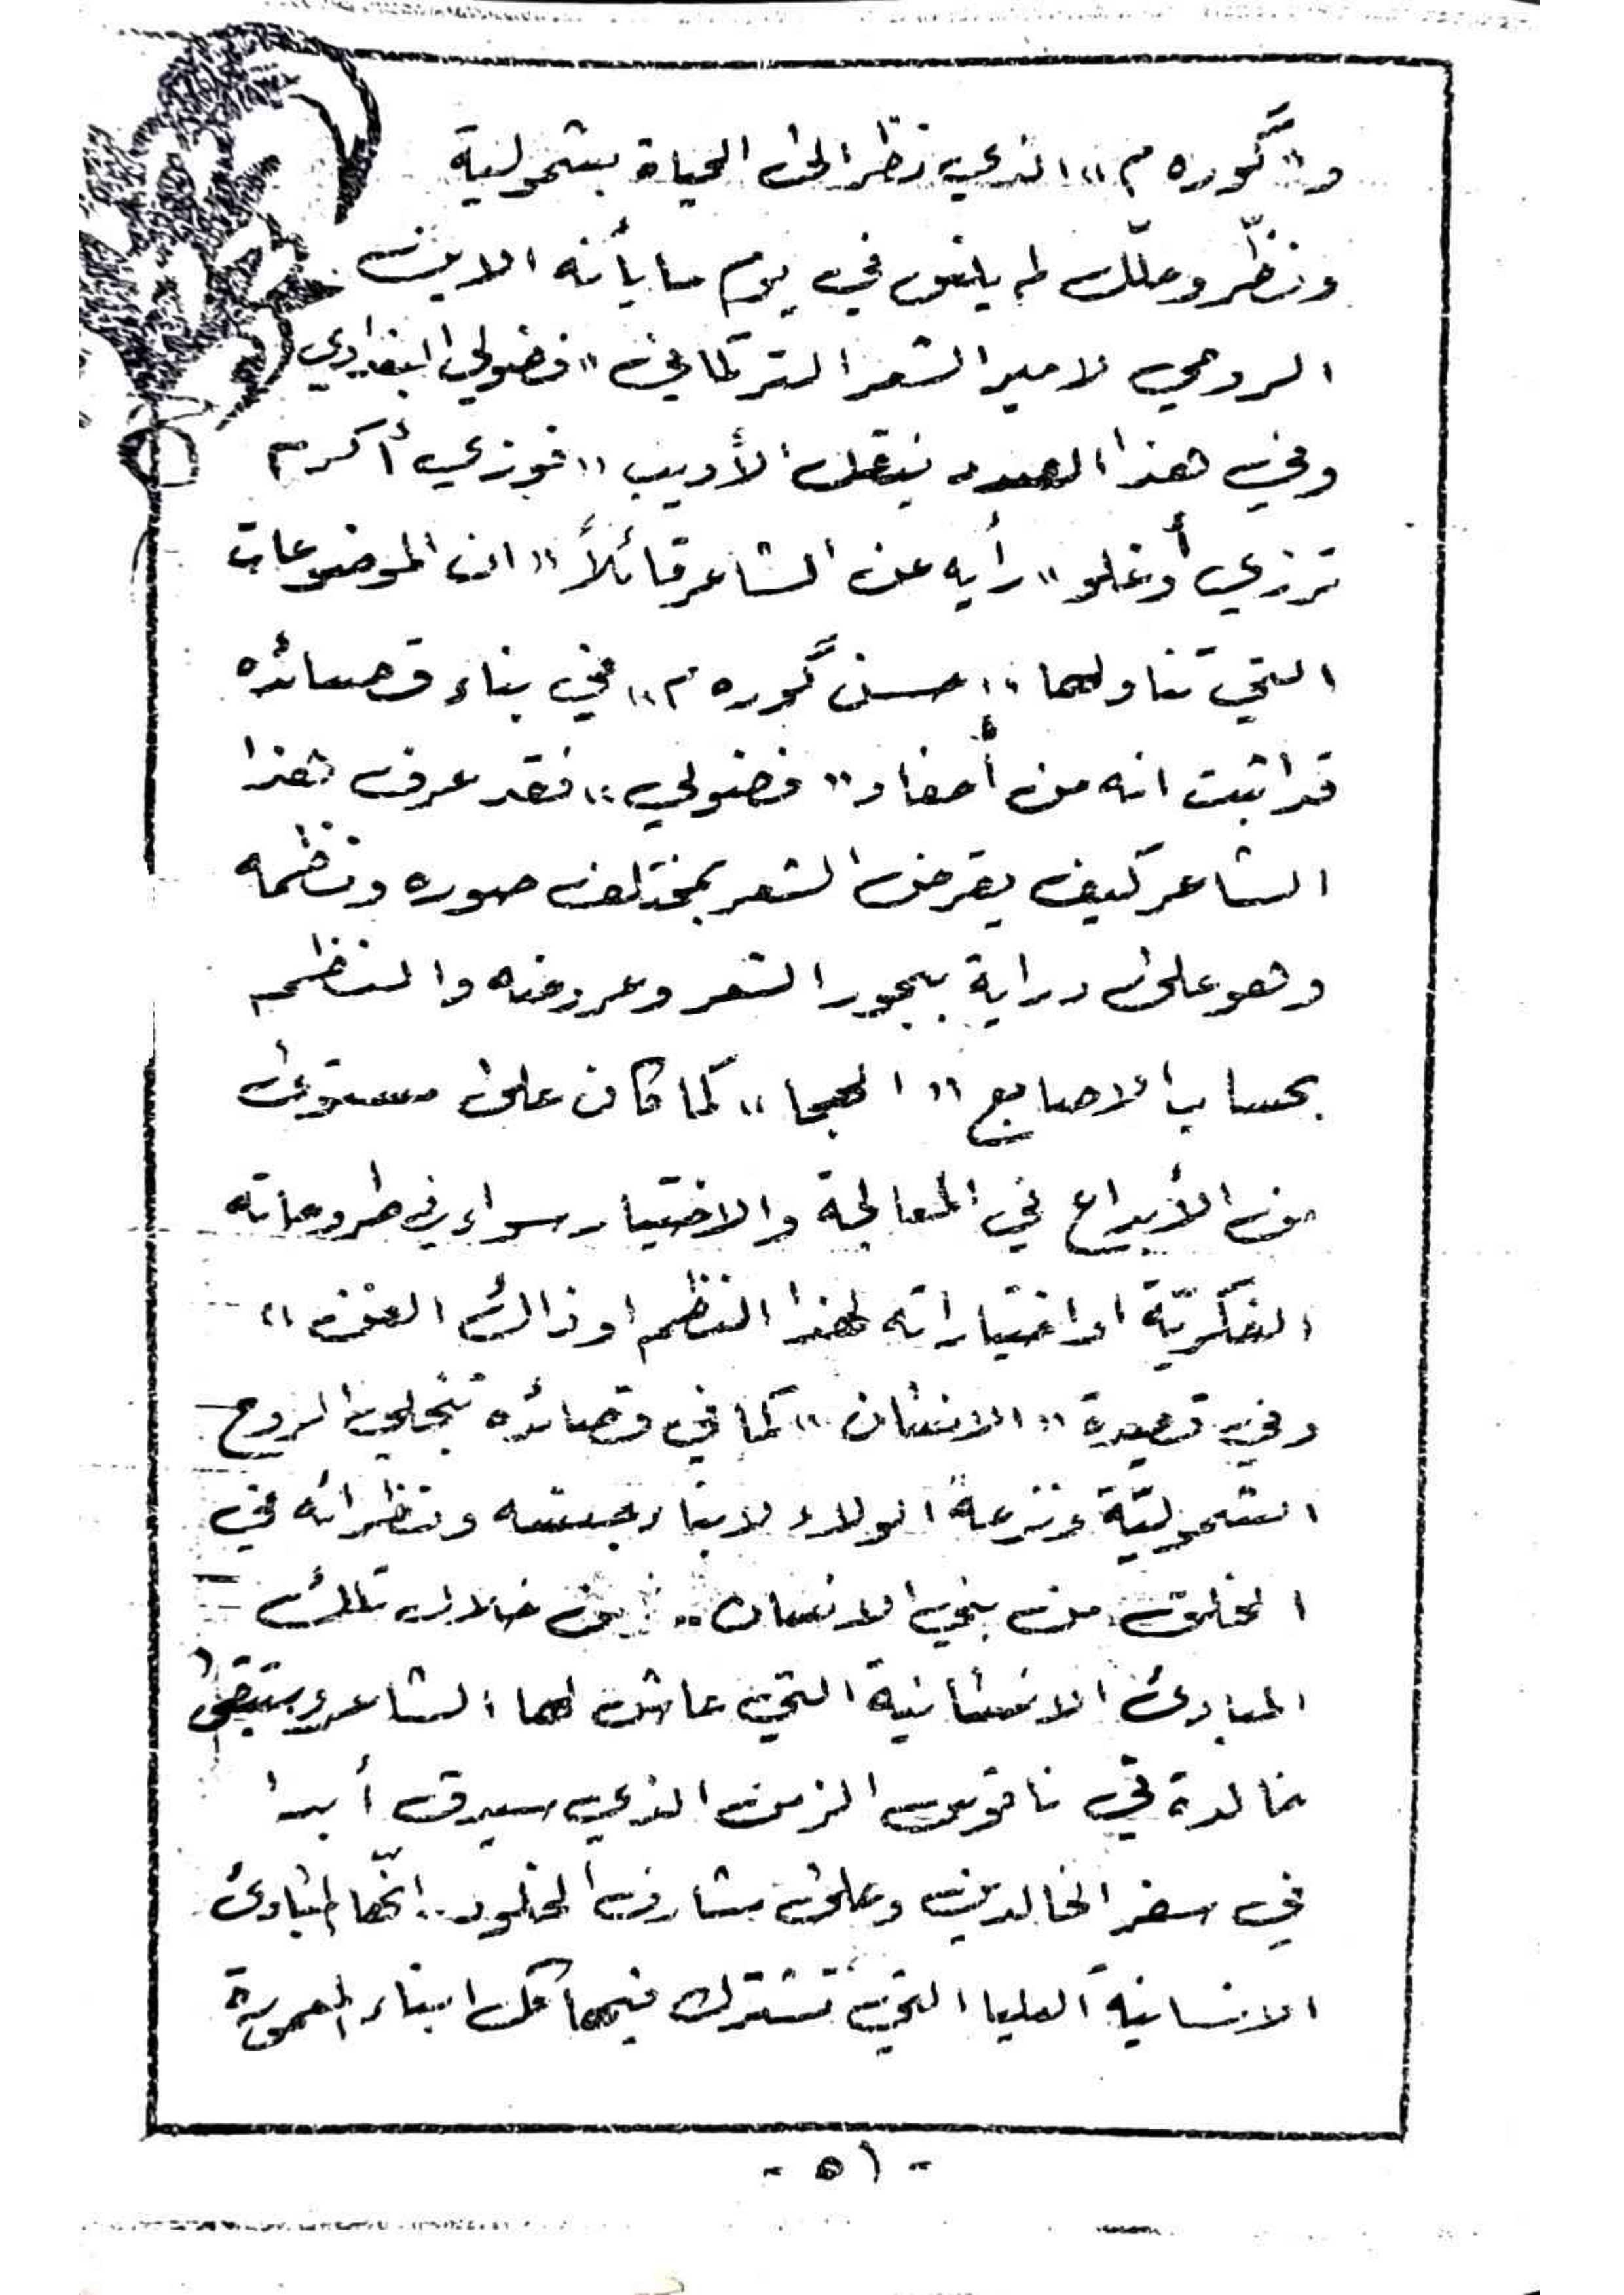 و"گوره م" الذي نظر الى الحياة بشمولية
ونظّر وعلّل لم يلغ في يوم ما بأنه الابن
الروحي لامير الشعر التركماني "فضولي البغدادي
وفي هذا الصدد ينقل الأديب "فوزي أكرم
ترزي أوغلو" رأيه عن الشاعر قائلاً "ان الموضوعات
التي تناولها "حسن گوره م" في بناء قصائده
قد اثبت انه من أحفاد "فضولي" فقد عرف هذا
الشاعر كيف يقرض الشعر بمختلف صوره ونظمه
وهو على دراية ببحور الشعر وعروضه والنظم
بحساب الاصابع "الهجا" كما كان على مستوى
من الأبداع في المعالجة والاختيار سواء في طروحاته
الفكريّة او اختياراته لهذا النظم او ذالك الفن"
وفي قصيدة "الانسان" كما في قصائده تتجلى الروح
الشموليّة ونزعة الولاء لابناء جنسه ونظراته في
الخلق من بني الانسان.. من خلال تلك
المبادئ الانسانية التي عاش لها الشاعر وستبقى
خالدة في ناقوس الزمن الذي سيدق أبدا
في سفر الخالدين وعلى مشارف الخلود.. انّها المبادئ
الانسانية العليا التي تشترك فيها كل ابناء المعمورة
- ٥١ -